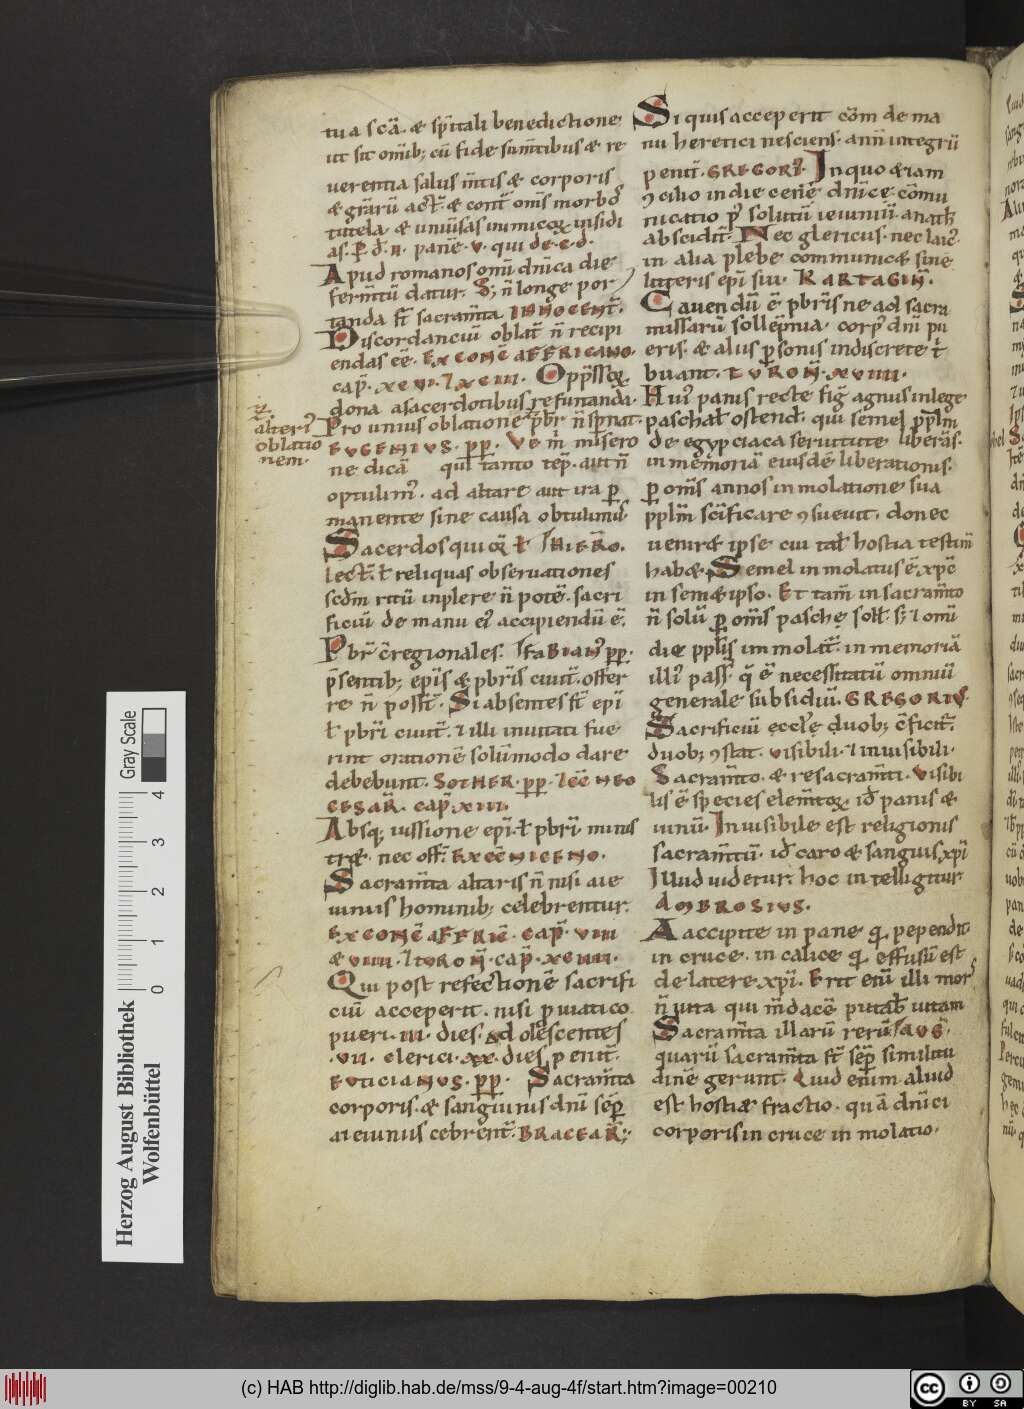 tua scā. & sp̄itali benedictione
ut sit om̄ib; cū fide sum̄tibus & re
uerentia salus m̄tis & corporis
tutela. & uniūsas inimicoꝝ insidi
Apud romanos om̄i dn̄ica die
ferm̄tū datur. S; n̄ longe por
tanda st̄ sacram̄ta INNOCENT̄.
Discordanciū oblat̄ n̄ recipi
endas eē. EX CONĒ AFFRICANO.
cap̄. XCVI. ⁊ XCIII. Opp̄ssoꝝ
dona a sacerdotibus refutanda.
Pro unius oblatione p̄br̄ n̄ sp̄nat.
alteri᾽
oblatio
nem.
EUGENIUS. PP̄. Ve m̄ misero
ne dicā qui tanto tēp̄. aut n̄
optulim᾽. ad altare aut ira ꝑ
manente sine causa obtulimus᾽
Sacerdos qui q̄ ł HIERO.
Lect̄. ł reliquas obseruationes
scd̄m ritū inplere n̄ potē. sacri
ficiū de manu ei᾽ accipiendū ē.
Pbr̄ c̄regionales. FABIAN᾽ PP̄.
p̄sentib; epīs & pbr̄is ciuit̄. offer
re n̄ poss̄t. Si absentes st̄ epī
ł pbr̄i ciuit̄. ⁊ illi inuitati fue
rint orationē solum̄modo dare
debebunt. SOTHER. PP̄. ⁊ CC̄ NEO
CESAR̄. CAP̄. XIII.
Absq; iussione epī. ł pbr̄i minis
tr&. nec off̄. EX CC̄ NICENO.
Sacram̄ta altaris n̄ nisi a ie
iunis hominib; celebrentur.
EX CONĒ AFFRIĒ. CAP̄. VIII
& VIIII. ⁊ TURON̄. CAP̄. XCIIII.
Qui post refectionē sacrifi
ciū acceperit. nisi ꝑ uiatico
pueri. III. dies. adolescentes
.VII. clerici. XX. dies penit̄.
EUTICIANUS. PP̄. Sacram̄ta
corporis. & sanguinis dn̄i sēp̄
a ieiuniis cebrent̄. BRACEAR̄;
Si quis acceperit cōm de ma
nu heretici nesciens. ann̄ integrū
penit̄. GREGORI᾽. In quo &iam
ꝯcilio in die cenē dn̄icē cōmu
nicatio p᾽ solutū ieiuniū. anath̄
abscidit̄. Nec glericus. nec laic᾽.
in alia plebe communic& sine
litteris epī sui. KARTAGIN̄.
Cauendū ē pbr̄is ne ad sacra
missarū sollēpnia. corp᾽ dn̄i pu
eris. & aliis ꝑsonis indiscrete t̄
buant. TURON̄. XVIIII.
Hui᾽ panis recte fig̃ agnus in lege
paschał ostend̄. qui semel pp̄lm̄
de egypciaca seruitute liberās.
in memoriā eiusdē liberationis.
ꝑ om̄s annos in molatione sua
pp̄lm̄ sc̄ificare ꝯsueuit. donec
uenir& ipse cui tał hostia testim̄
hab&. Semel in molatus ē xp̄c
in sem&ipso. Et tam̄ in sacram̄to
n̄ solū ꝑ om̄s paschę soll̄. s; ⁊ om̄i
die pplīs immolat̄. in memoriā
illi᾽ pass̄. q̄ ē necessitatū omniū
generale subsidiū. GREGORIUS.
Sacrificiū ęccłę duob; c̄ficit̄.
duob; ꝯstat. uisibili. ⁊ inuisibili.
Sacram̄to. & re sacram̄ti. Visibi
lis ē species elem̄toꝝ. id̄ panis &
uinū. Inuisibile est religionis
sacram̄tū. id̄ caro & sanguis xp̄i
Illud uidetur. hoc intelligitur
AMBROSIUS.
Aaccipite in pane q̄ pependit
in cruce. in calice q̄ effusū est
de latere xp̄i. Erit enī illi mors
n̄ uita qui m̄dacē putab̄ uitam
Sacram̄ta illarū rerū AUḠ.
quarū sacram̄ta st̄ sēp̄ similitu
dinē gerunt. Quid enim aliud
est hostiæ fractio. quā dn̄ici
corporis in cruce in molatio.
Herzog August Bibliothek
Wolfenbüttel
Gray Scale
0 1 2 3 4
(c) HAB http://diglib.hab.de/mss/9-4-aug-4f/start.htm?image=00210
cc BY SA